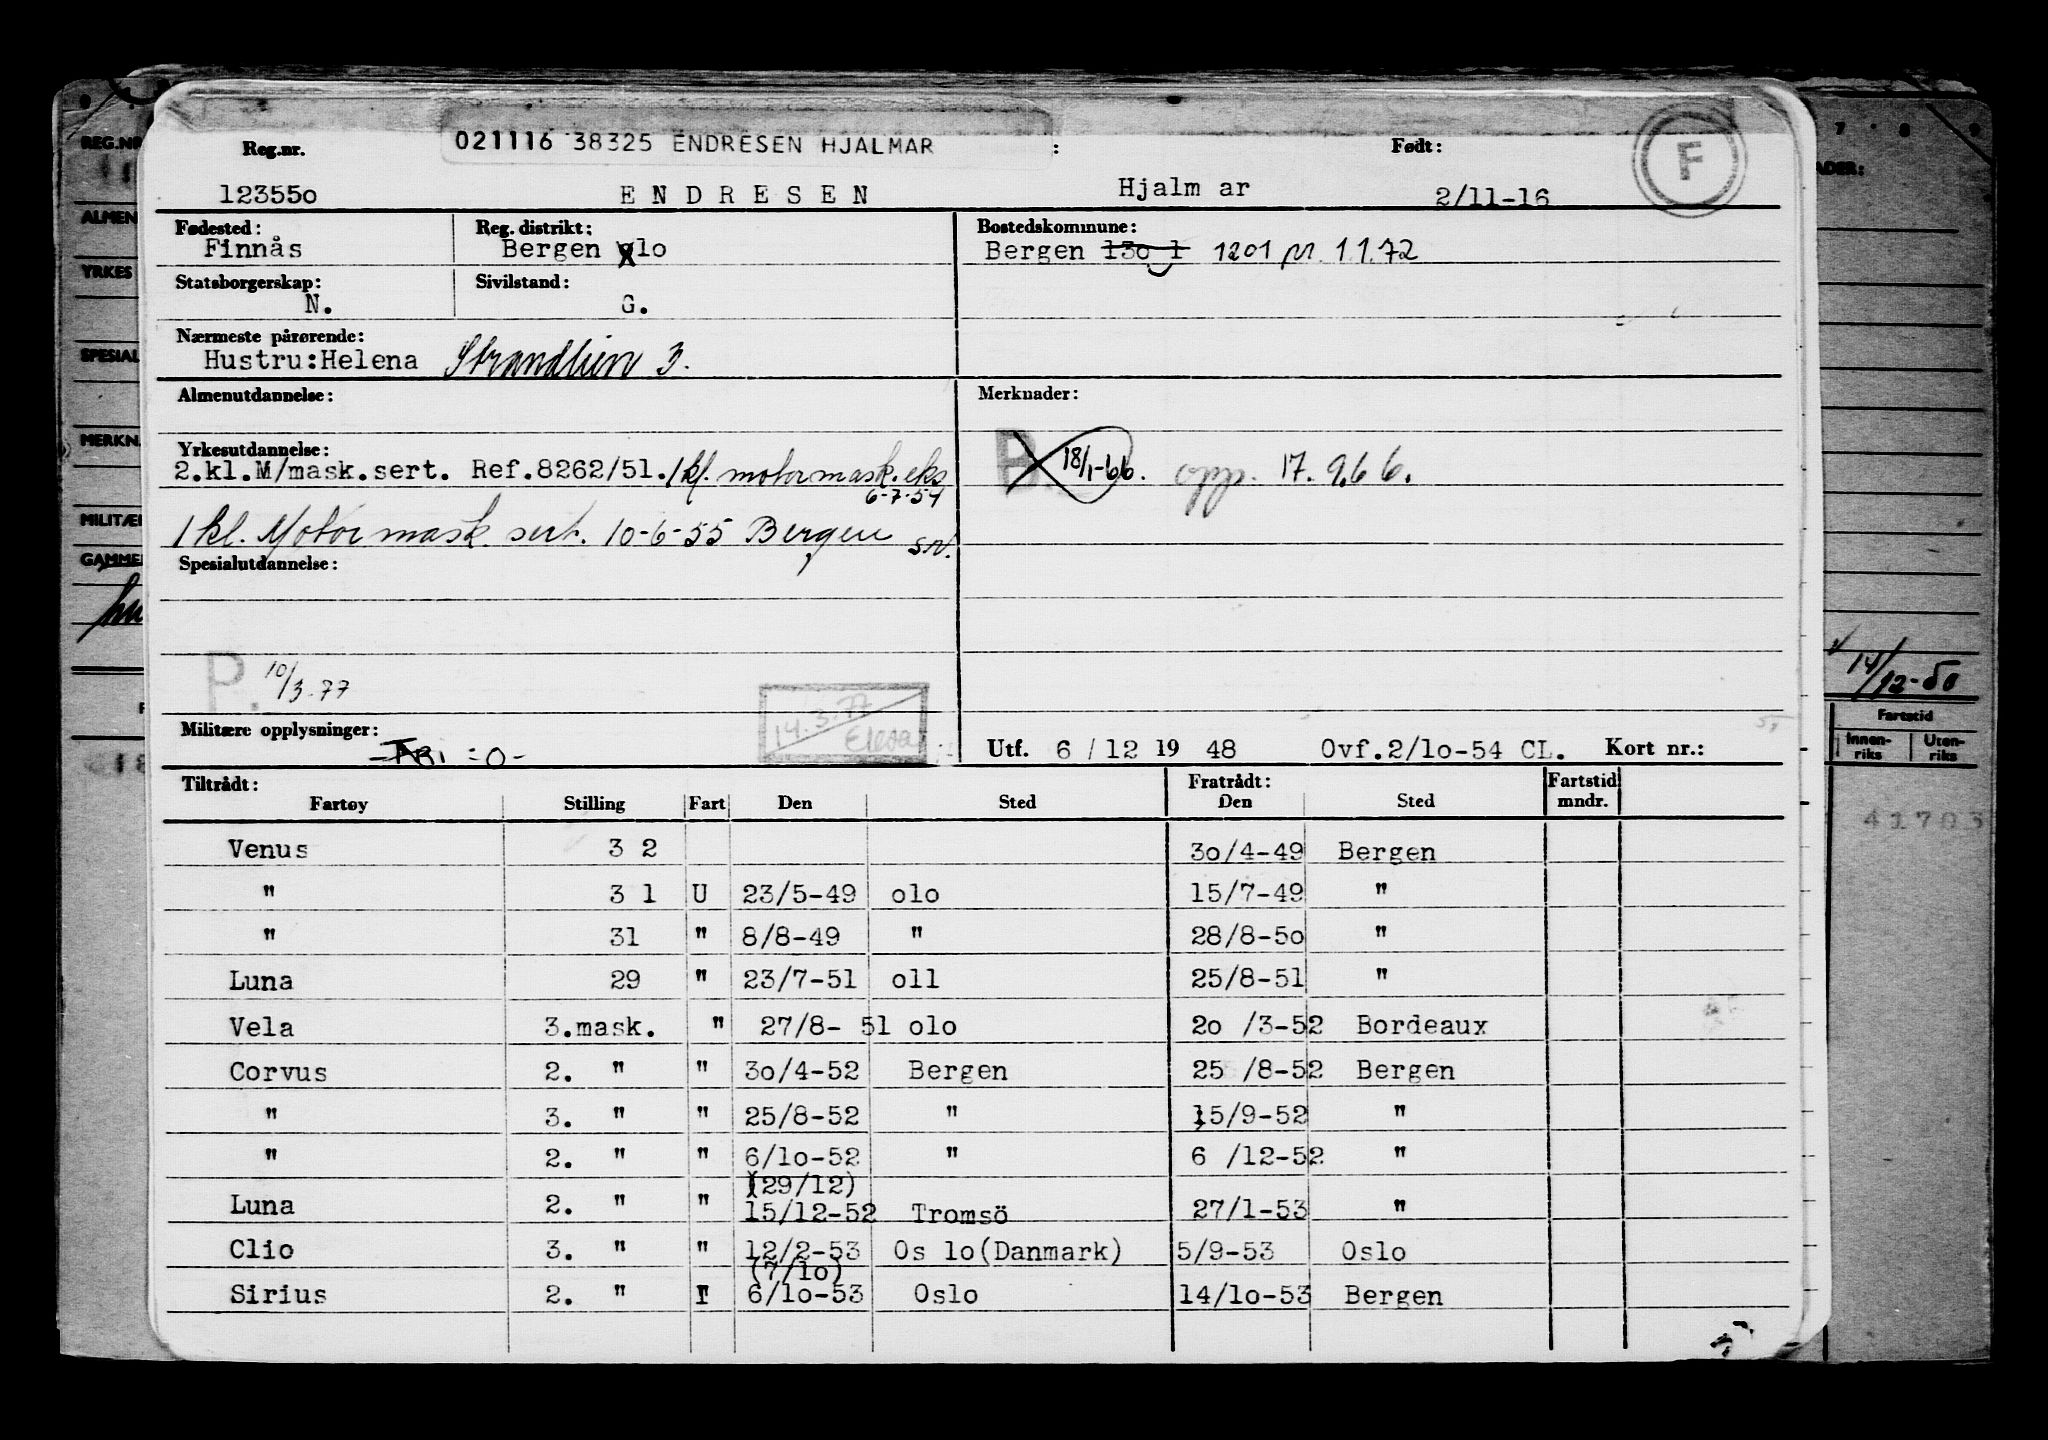 021116 38325 ENDRESEN HJALMAR
Reg.nr. : Født: F
12355o E N D R E S E N Hjalm ar 2/11-16
Fødested: Reg. distrikt: Bostedskommune:
Finnås Bergen olo Bergen 13o 1 1201 pr. 1.1.72
Statsborgerskap: Sivilstand:
N. G.
Nærmeste pårørende:
Hustru:Helena 3.
Almenutdannelse: Merknader:
Yrkesutdannelse:
2.kl.M/mask.sert. Ref.8262/51. 1 kl. motormask. eks B. 18/1-66. opp. 17. 9.66.
6-7-54
1 kl. Motor mask. sert. 10-6-55 Bergen
Spesialutdannelse:
P. 10/3-77
14.3.77
Militære opplysninger:
Utf. 6 / 12 19 48 Ovf.2/1o-54 CL. Kort nr.:
Tiltrådt: Fratrådt: Fartstid
Fartøy Stilling Fart Den Sted Den Sted mndr.
Venus 3 2 3o/4-49 Bergen
" 3 1 U 23/5-49 olo 15/7-49 "
" 31 " 8/8-49 " 28/8-5o "
Luna 29 " 23/7-51 oll 25/8-51 "
Vela 3.mask. " 27/8- 51 olo 2o /3-52 Bordeaux
Corvus 2. " " 3o/4-52 Bergen 25 /8-52 Bergen
" 3. " " 25/8-52 " 15/9-52 "
" 2. " " 6/1o-52 " 6 /12-52 "
(29/12)
Luna 2. " " 15/12-52 Tromsö 27/1-53 "
Clio 3. " " 12/2-53 Os lo(Danmark) 5/9-53 Oslo
(7/1o)
Sirius 2. " 6/1o-53 Oslo 14/1o-53 Bergen
REG.NR
ALMEN
YRKES
SPESIAL
MERKN
MILITÆ
GAMMEL
7 8 9
14/12-50
Fartstid
Innen-
riks
Uten-
riks
41703